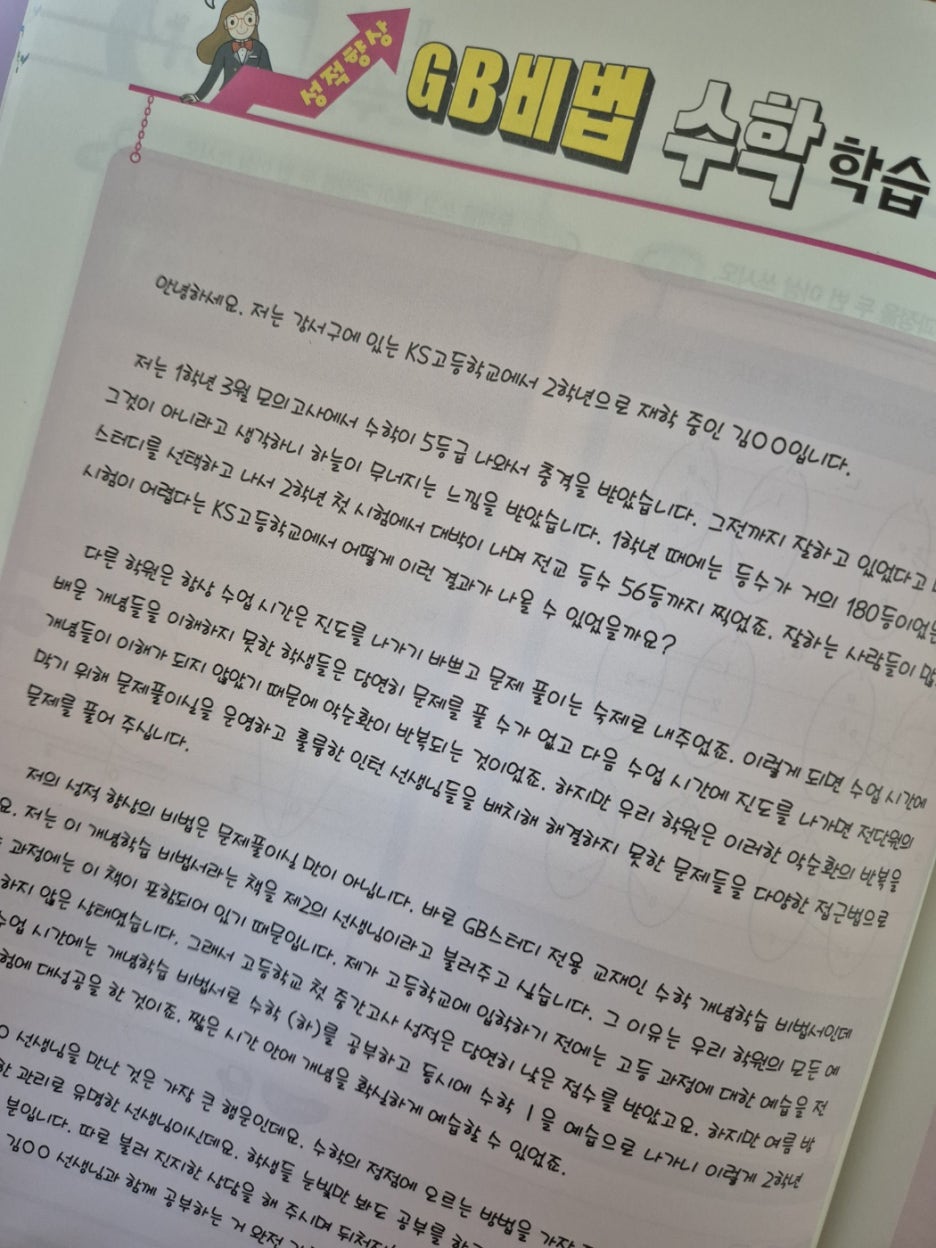 성적향상
GB비법 수학 학습
안녕하세요. 저는 강서구에 있는 KS고등학교에서 2학년으로 재학 중인 김OO입니다.
저는 1학년 3월 모의고사에서 수학이 5등급 나와서 충격을 받았습니다. 그전까지 잘하고 있었다고
그것이 아니라고 생각하니 하늘이 무너지는 느낌을 받았습니다. 1학년 때에는 등수가 거의 180등이었는
스터디를 선택하고 나서 2학년 첫 시험에서 대박이 나며 전교 등수 56등까지 찍었죠. 잘하는 사람들이 많
시험이 어렵다는 KS고등학교에서 어떻게 이런 결과가 나올 수 있었을까요?
다른 학원은 항상 수업 시간은 진도를 나가기 바쁘고 문제 풀이는 숙제로 내주었죠. 이렇게 되면 수업 시간에
배운 개념들을 이해하지 못한 학생들은 당연히 문제를 풀 수가 없고 다음 수업 시간에 진도를 나가면 전단원의
개념들이 이해가 되지 않았기 때문에 악순환이 반복되는 것이었죠. 하지만 우리 학원은 이러한 악순환의 반복을
막기 위해 문제풀이실을 운영하고 훌륭한 인턴 선생님들을 배치해 해결하지 못한 문제들을 다양한 접근법으로
문제를 풀어 주십니다.
저의 성적 향상의 비법은 문제풀이실 만이 아닙니다. 바로 GB스터디 전용 교재인 수학 개념학습 비법서인데
요. 저는 이 개념학습 비법서라는 책을 제2의 선생님이라고 불러주고 싶습니다. 그 이유는 우리 학원의 모든 예
과정에는 이 책이 포함되어 있기 때문입니다. 제가 고등학교에 입학하기 전에는 고등 과정에 대한 예습을 전
하지 않은 상태였습니다. 그래서 고등학교 첫 중간고사 성적은 당연히 낮은 점수를 받았고요. 하지만 여름 방
수업 시간에는 개념학습 비법서로 수학 (하)를 공부하고 동시에 수학 I을 예습으로 나가니 이렇게 2학년
험에 대성공을 한 것이죠. 짧은 시간 안에 개념을 확실하게 예습할 수 있었죠.
O 선생님을 만난 것은 가장 큰 행운인데요. 수학의 정점에 오르는 방법을 가장
한 관리로 유명한 선생님이신데요. 학생들 눈빛만 봐도 공부를
분입니다. 따로 불러 진지한 상담을 해 주시며
김OO 선생님과 함께 공부하는 거 완전